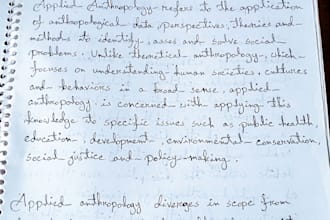 Applied Anthropology refers to the application
of anthropological data, perspectives, theories and
methods to identify, asses and solve social
problems. Unlike theoretical anthropology, which
focuses on understanding human societies, cultures
and behaviors in a broad sense, applied
anthropology is concerned with applying this
knowledge to specific issues such as public health,
education, development, environmental conservation,
social justice and policy-making.
Applied anthropology diverges in scope from